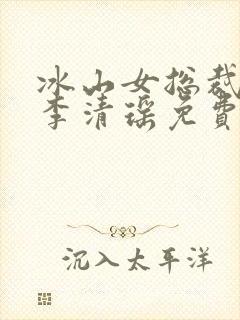 冰山女总裁
李清瑶免費
沉入太平洋